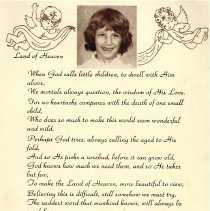 Land of Heaven
When God calls little children, to dwell with Him
above,
We mortals always question, the wisdom of His Love.
For no heartache compares with the death of one small
child,
Who does so much to make this world seem wonderful and
mild.
Perhaps God tires, always calling the aged to His
fold,
And so He picks a rosebud, before it can grow old.
God knows how much we need them, and so He takes
but few,
To make the Land of Heaven, more beautiful to view.
Believing this is difficult, still somehow we must try,
The saddest word that mankind knows, will always be